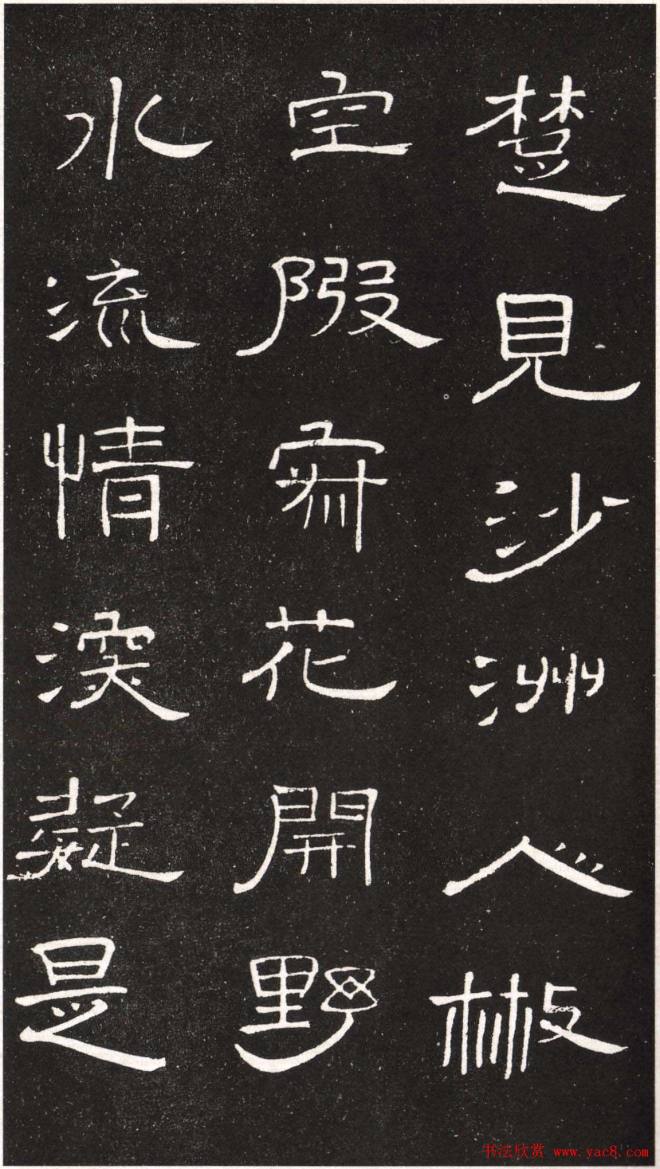 楚見沙洲人㪔
空寂花開野
水流情深疑是
书法欣赏 www.yac8.com